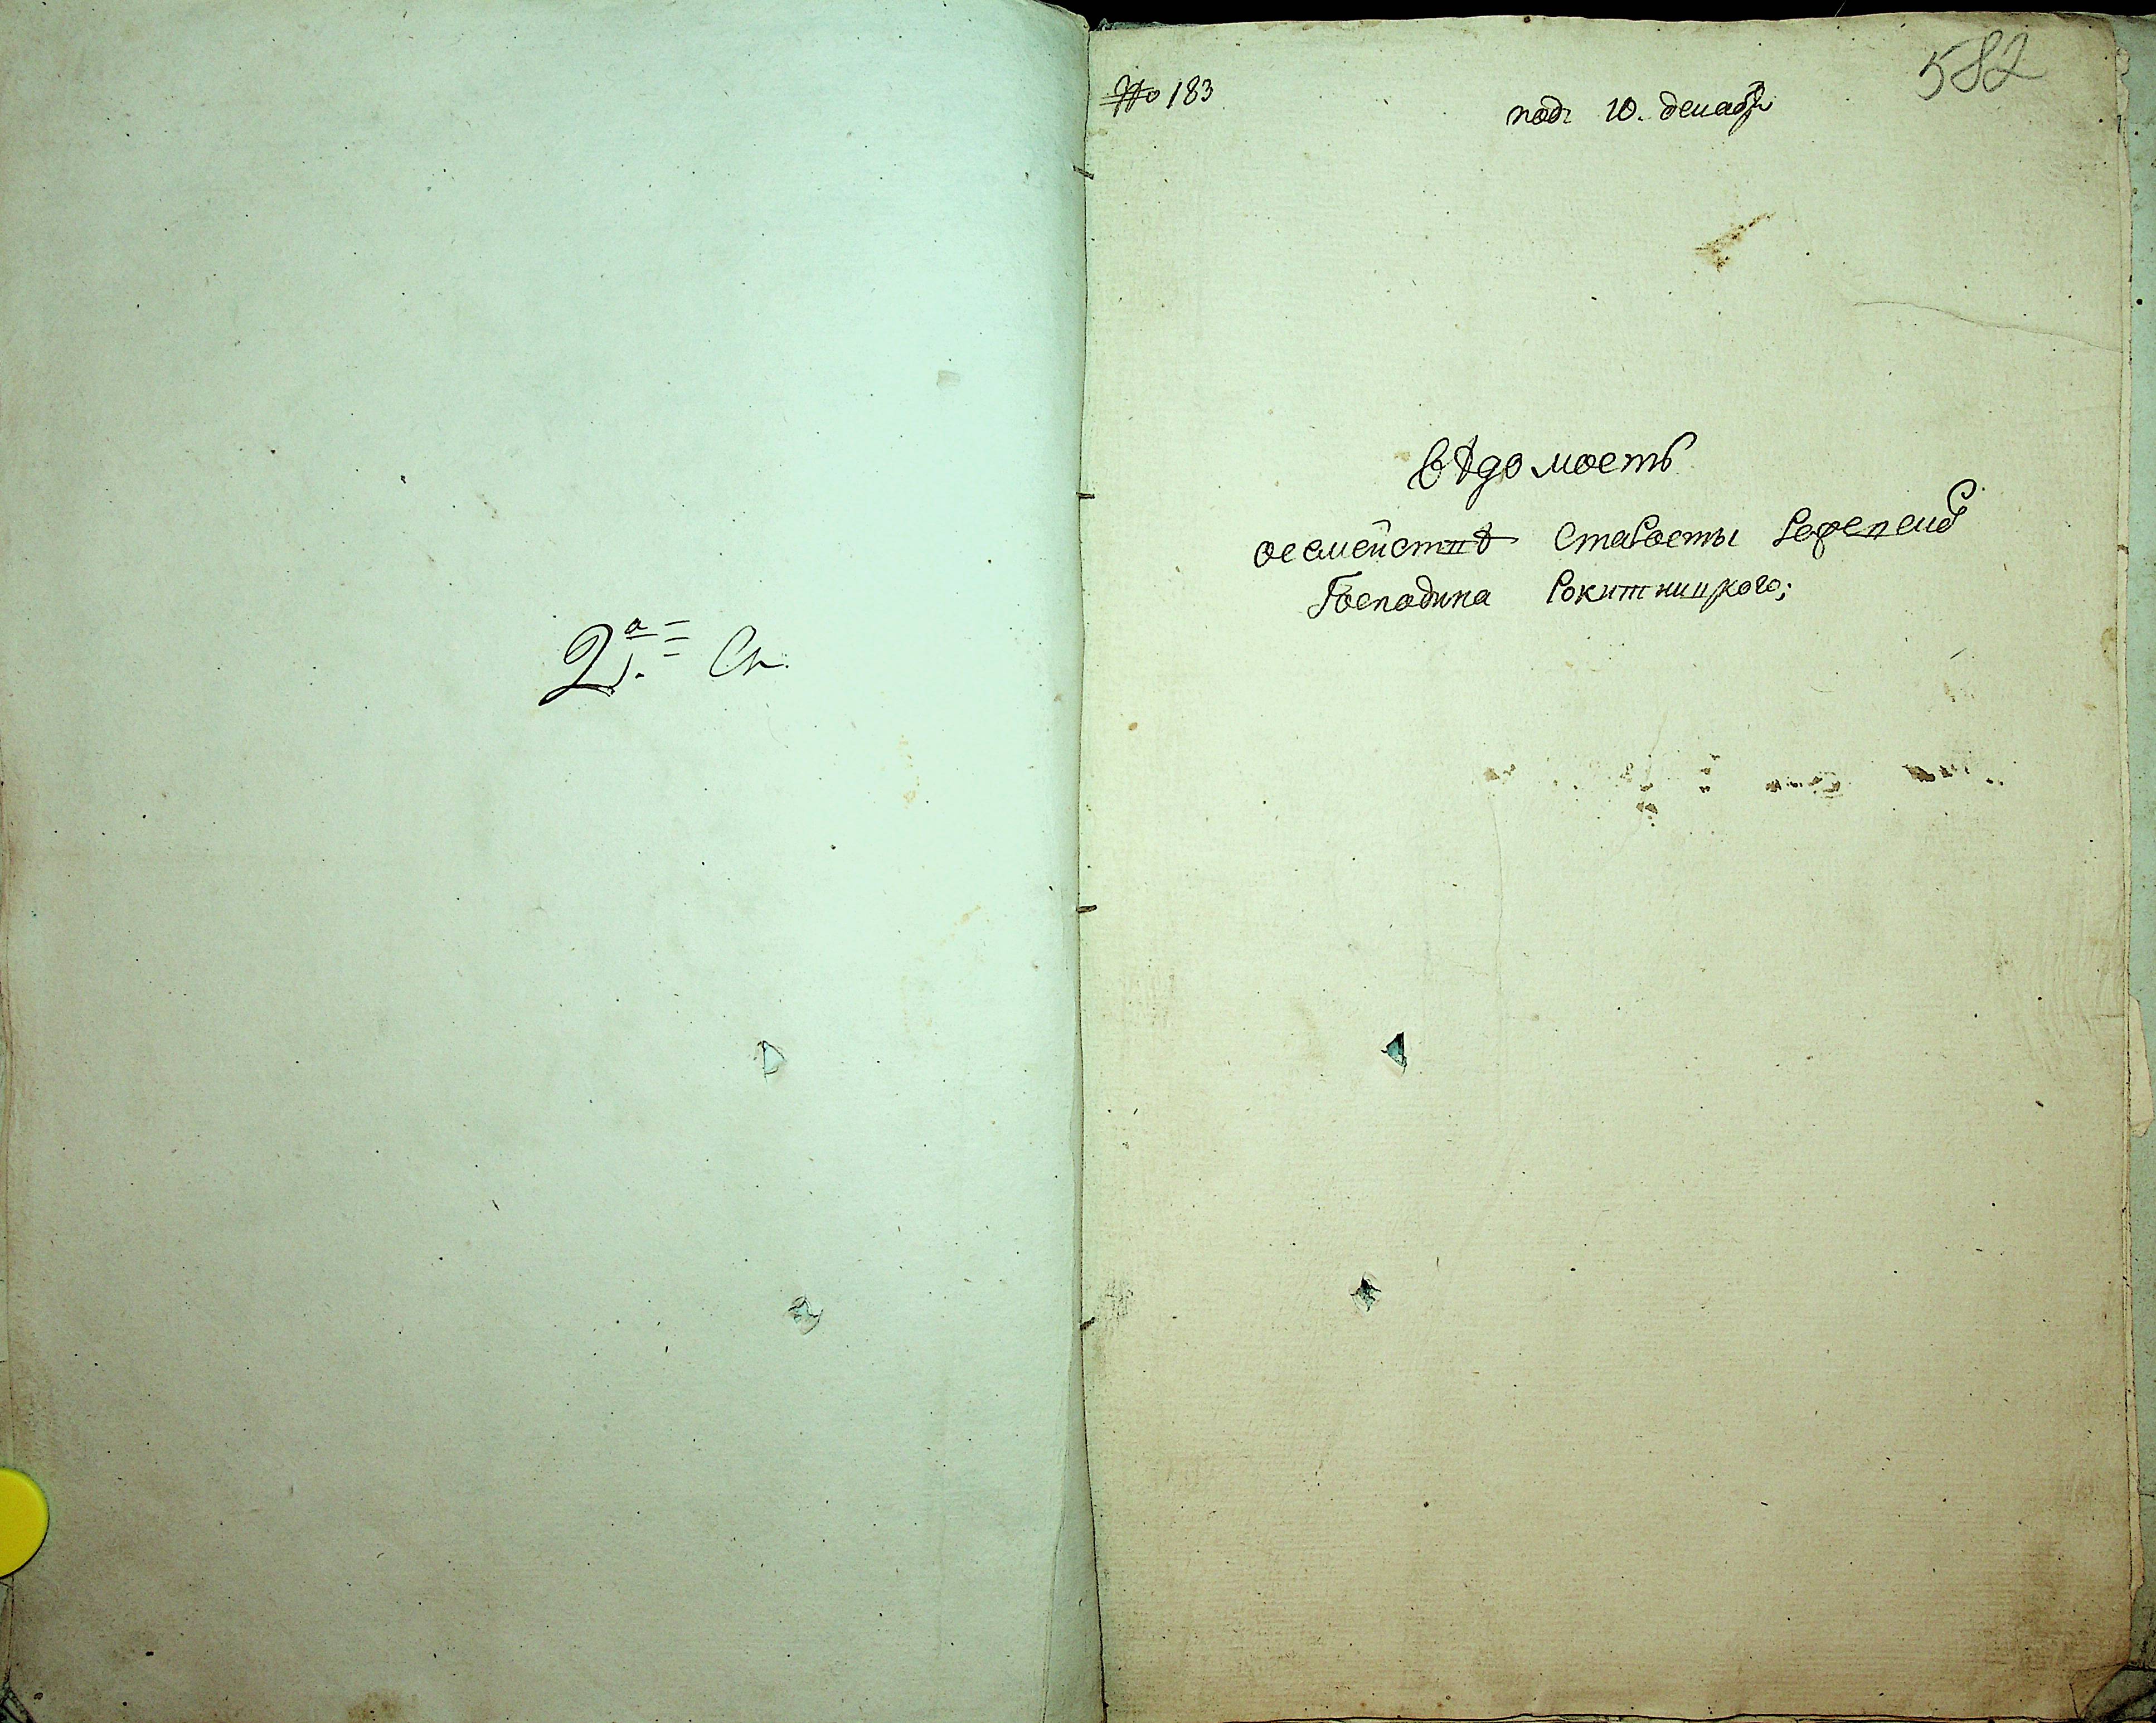 2.а Ск
№ 183
под: 10. декабр
582
вѣдомость
осемействѣ Старосты
Господина Рокитницкого;